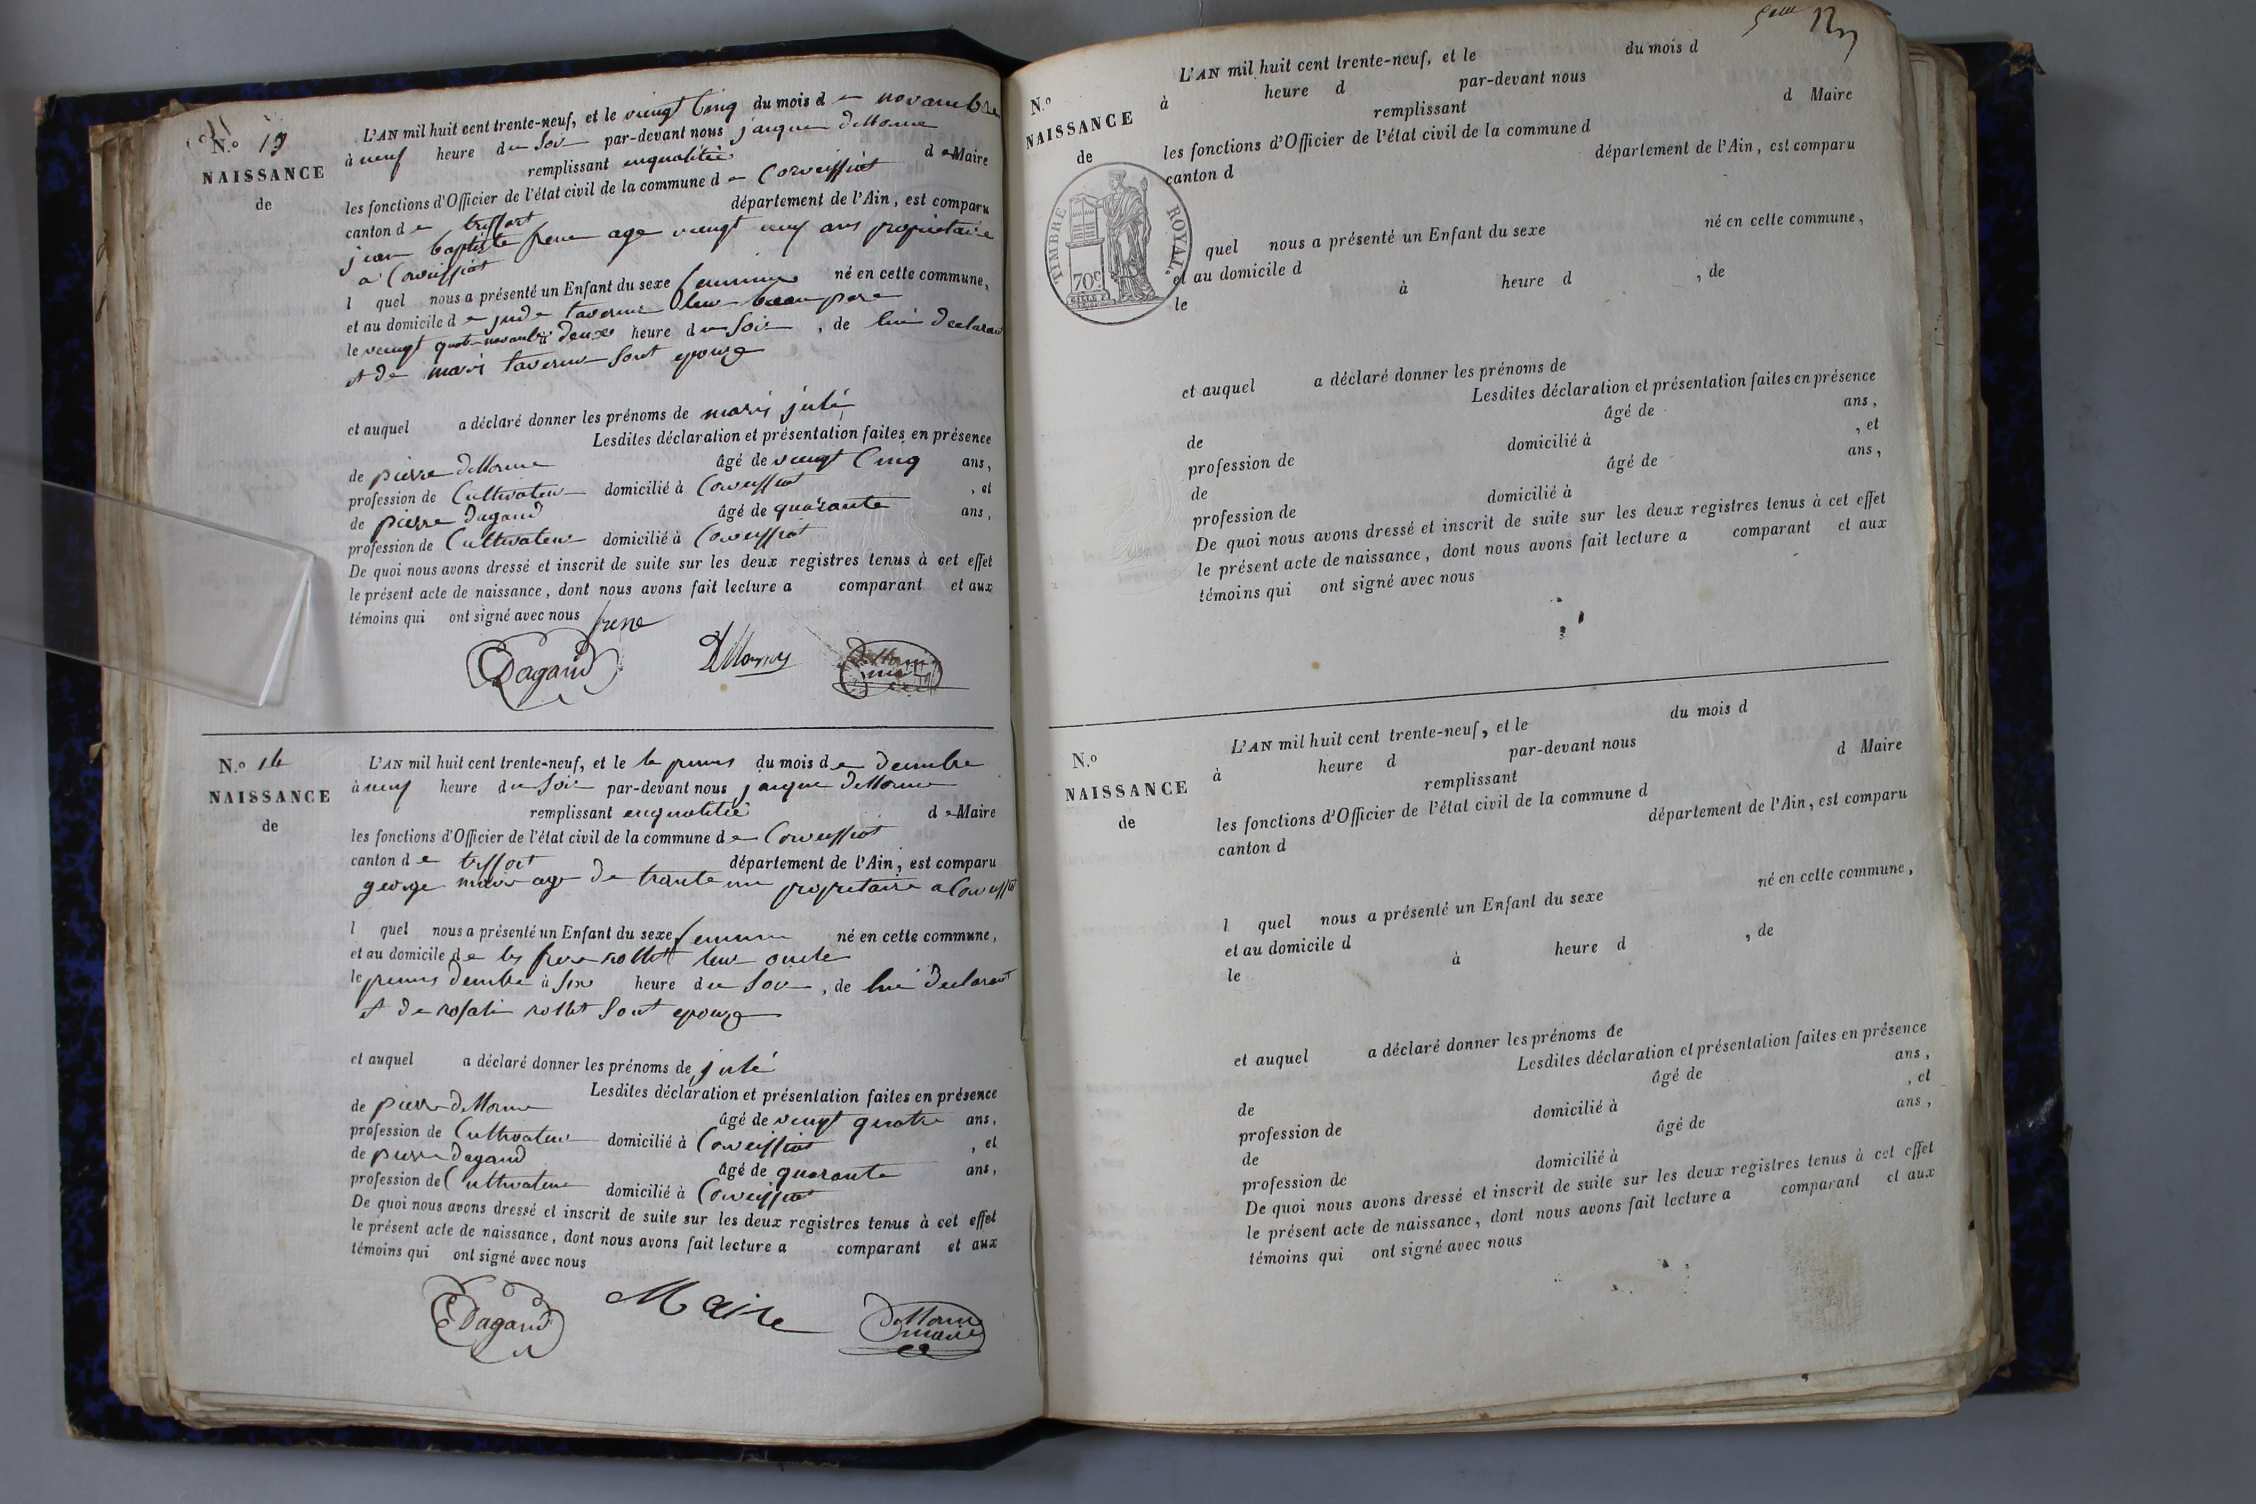 N.o 13
NAISSANCE
de
L'AN mil huit cent trente-neuf, et le vingt Cinq du mois de novambre
à neuf heure du Soir par-devant nous jacque
remplissant enqualitée de Maire
les fonctions d'Officier de l'état civil de la commune de Corveissiat
canton de treffort département de l'Ain, est comparu
jean baptiste frene age vingt neuf ans propietaire
a Corveissiat
l quel nous a présenté un Enfant du sexe feminin né en cette commune,
et au domicile de jude tavernie leur beau pere
le vingt quatre novanbre à deux heure du Soir, de lui declarant
et de mari tavernie Sont epouze
et auquel a déclaré donner les prénoms de mari juli
Lesdites déclaration et présentation faites en présence
de pierre âgé de vingt Cinq ans,
profession de Cultivateur domicilié à Corveissiat, et
de pierre Dagand âgé de quarante ans,
profession de Cultivateur domicilié à Corveissiat
De quoi nous avons dressé et inscrit de suite sur les deux registres tenus à cet effet
le présent acte de naissance, dont nous avons fait lecture a comparant et aux
témoins qui ont signé avec nous
frene
Dagand
N.o 14
NAISSANCE
de
L'AN mil huit cent trente-neuf, et le le premier du mois de decembre
à neuf heure du Soir par-devant nous jacque
remplissant enqualitée de Maire
les fonctions d'Officier de l'état civil de la commune de Corveissiat
canton de treffort département de l'Ain, est comparu
george maire age de trante un propretaire a Corveissiat
l quel nous a présenté un Enfant du sexe feminin né en cette commune,
et au domicile de les frere rollet leur oncle
le premier decembre à Six heure du Soir, de lui Declarant
et de rosali rollet Sont epouze
et auquel a déclaré donner les prénoms de juli
Lesdites déclaration et présentation faites en présence
de pierre âgé de vingt quatre ans,
profession de Cultivateur domicilié à Corveissiat, et
de pierre Dagand âgé de quarante ans,
profession de Cultivateur domicilié à Corveissiat
De quoi nous avons dressé et inscrit de suite sur les deux registres tenus à cet effet
le présent acte de naissance, dont nous avons fait lecture a comparant et aux
témoins qui ont signé avec nous
Dagand Maire
maire
N.o
NAISSANCE
de
TIMBRE ROYAL.
70c
L'AN mil huit cent trente-neuf, et le du mois d
à heure d par-devant nous
remplissant d Maire
les fonctions d'Officier de l'état civil de la commune d
canton d département de l'Ain, est comparu
quel nous a présenté un Enfant du sexe né en cette commune,
et au domicile d
le à heure d , de
et auquel a déclaré donner les prénoms de
Lesdites déclaration et présentation faites en présence
de âgé de ans,
profession de domicilié à , et
de âgé de ans,
profession de domicilié à
De quoi nous avons dressé et inscrit de suite sur les deux registres tenus à cet effet
le présent acte de naissance, dont nous avons fait lecture a comparant et aux
témoins qui ont signé avec nous
N.o
NAISSANCE
de
L'AN mil huit cent trente-neuf, et le du mois d
à heure d par-devant nous
remplissant d Maire
les fonctions d'Officier de l'état civil de la commune d
canton d département de l'Ain, est comparu
l quel nous a présenté un Enfant du sexe né en cette commune,
et au domicile d
le à heure d , de
et auquel a déclaré donner les prénoms de
Lesdites déclaration et présentation faites en présence
de âgé de ans,
profession de domicilié à , et
de âgé de ans,
profession de domicilié à
De quoi nous avons dressé et inscrit de suite sur les deux registres tenus à cet effet
le présent acte de naissance, dont nous avons fait lecture a comparant et aux
témoins qui ont signé avec nous